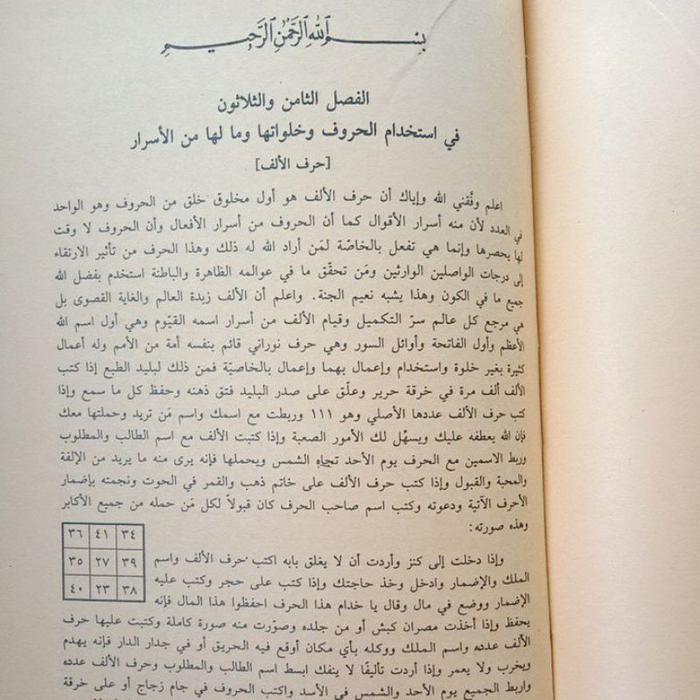 بسم الله الرحمن الرحيم
الفصل الثامن والثلاثون
في استخدام الحروف وخلواتها وما لها من الأسرار
[حرف الألف]
اعلم وفقني الله وإياك أن حرف الألف هو أول مخلوق خلق من الحروف وهو الواحد
في العدد لأن منه أسرار الأقوال كما أن الحروف من أسرار الأفعال وأن الحروف لا وقت
لها يحصرها وإنما هي تفعل بالخاصّة لمَن أراد الله له ذلك وهذا الحرف من تأثير الارتقاء
إلى درجات الواصلين الوارثين ومَن تحقّق ما في عوالمه الظاهرة والباطنة استخدم بفضل الله
جميع ما في الكون وهذا يشبه نعيم الجنة. واعلم أن الألف زبدة العالم والغاية القصوى بل
هي مرجع كل عالم سرّ التكميل وقيام الألف من أسرار اسمه القيّوم وهي أول اسم الله
الأعظم وأول الفاتحة وأوائل السور وهي حرف نوراني قائم بنفسه أمة من الأمم وله أعمال
كثيرة بغير خلوة واستخدام وإعمال بهما وإعمال بالخاصيّة فمن ذلك لبليد الطبع إذا كتب
الألف ألف مرة في خرقة حرير وعلّق على صدر البليد فتق ذهنه وحفظ كل ما سمع وإذا
كتب حرف الألف عددها الأصلي وهو ١١١ وربطت مع اسمك واسم مَن تريد وحملتها معك
فإن الله يعطفه عليك ويسهّل لك الأمور الصعبة وإذا كتبت الألف مع اسم الطالب والمطلوب
وربط الاسمين مع الحرف يوم الأحد تجاه الشمس ويحملها فإنه يرى منه ما يريد من الإلفة
والمحبة والقبول وإذا كتب حرف الألف على خاتم ذهب والقمر في الحوت ونجمته بإضمار
الأحرف الآتية ودعوته وكتب اسم صاحب الحرف كان قبولاً لكل مَن حمله من جميع الأكابر
وهذه صورته:
٣٤ ٤١ ٣٦
٣٩ ٢٧ ٣٥
٣٨ ٢٣ ٤٠
وإذا دخلت إلى كنز وأردت أن لا يغلق بابه اكتب حرف الألف واسم
الملك والإضمار وادخل وخذ حاجتك وإذا كتب على حجر وكتب عليه
الإضمار ووضع في مال وقال يا خدام هذا الحرف احفظوا هذا المال فإنه
يحفظ وإذا أخذت مصران كبش أو من جلده وصوّرت منه صورة كاملة وكتبت عليها حرف
الألف عدده واسم الملك ووكله بأي مكان أوقع فيه الحريق أو في جدار الدار فإنه يهدم
ويخرب ولا يعمر وإذا أردت تأليفًا لا ينفك ابسط اسم الطالب والمطلوب وحرف الألف عدده
واربط الجميع يوم الأحد والشمس في الأسد واكتب الحروف في جام زجاج أو على خرقة